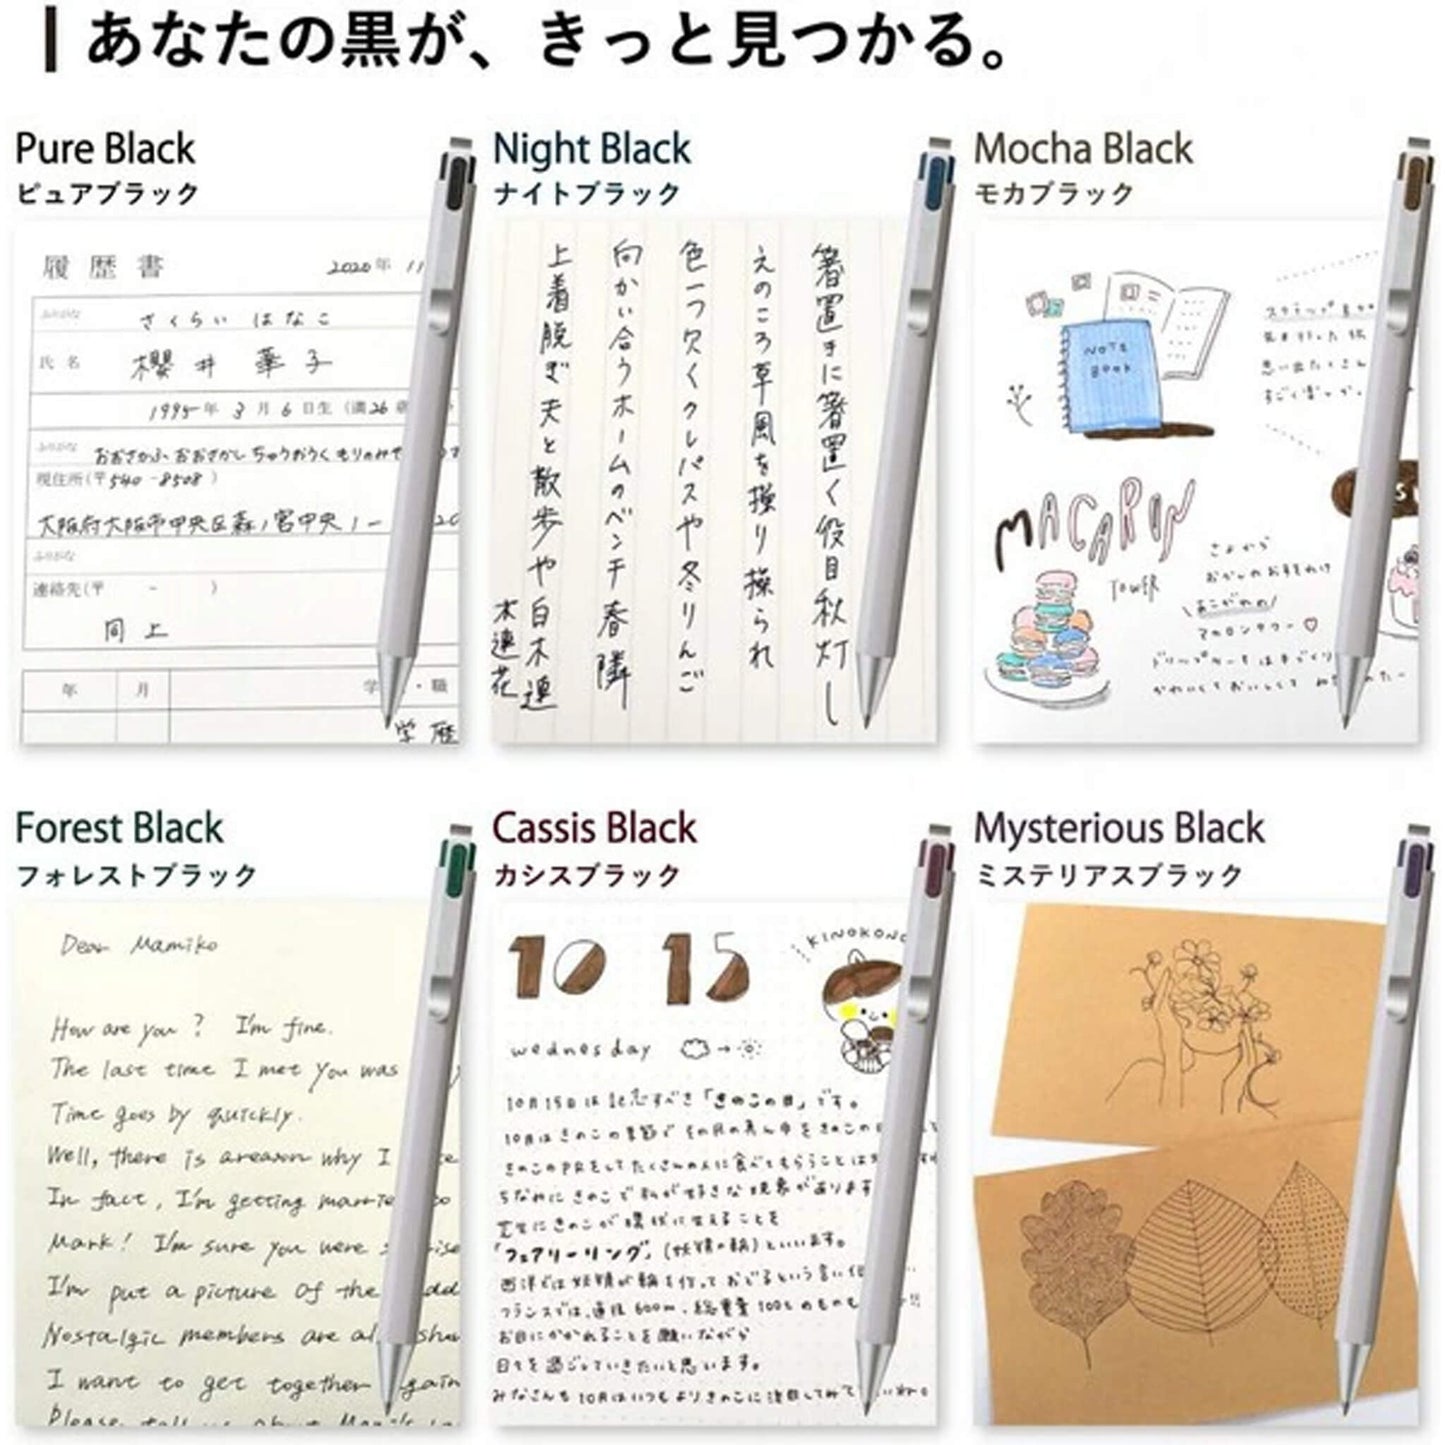 あなたの黒が、きっと見つかる。
Pure Black
ピュアブラック
履歴書
2020年 11
ふりがな
さくらい はなこ
氏名
櫻井 華子
1995年 3月6日生(満26歳
ふりがな
おおさかふ おおさかし ちゅうおうく もりのみや
現住所(〒540-8508)
大阪府大阪市中央区森ノ宮中央1-
ふりがな
連絡先(〒 - )
同上
年 月 学 ・職
学歴
Night Black
ナイトブラック
箸置きに箸置く役目秋灯し
えのころ草風を操り操られ
色一つ欠くクレパスや冬りんご
向かい合うホームのベンチ春隣
上着脱ぎ夫と散歩や白木蓮
木蓮花
Mocha Black
モカブラック
NOTE
BOOK
MACARON
TOWER
あこがれの
マカロンタワー♡
Forest Black
フォレストブラック
Dear Mamiko
How are you? I'm fine.
The last time I met you was
Time goes by quickly.
Well, there is areason why I
In fact, I'm getting marrie
Mark! I'm sure you were
I'm put a picture of the
Nostalgic members are al
I want to get together
Cassis Black
カシスブラック
10 15
KINOKONO
wednesday
10月15日は記念すべき「きのこの日」です。
10月はきのこの季節でその月の真ん中をきのこの日
きのこのPRをしてたくさんの人に食べてもらうことは
ちなみにきのこで私が好きな現象があります
芝生にきのこが環状に生えることを
「フェアリーリング」(妖精の輪)といいます。
西洋では妖精が輪を作っておどるという言い伝
フランスでは、直径600m、総重量100tのものも
お目にかかれることを願いながら
日々を過ごしていきたいと思います。
みなさんも10月はいつもよりきのこに注目してみて
Mysterious Black
ミステリアスブラック